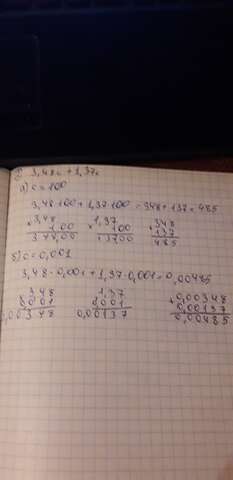 2) 3,48c + 1,37c
a) c = 100
3,48·100 + 1,37·100 = 348 + 137 = 485
×3,48 ×1,37 +348
100 100 137
348,00 137,00 485
б) c = 0,001
3,48·0,001 + 1,37·0,001 = 0,00485
3,48 1,37 +0,00348
0,001 0,001 0,00137
0,00348 0,00137 0,00485